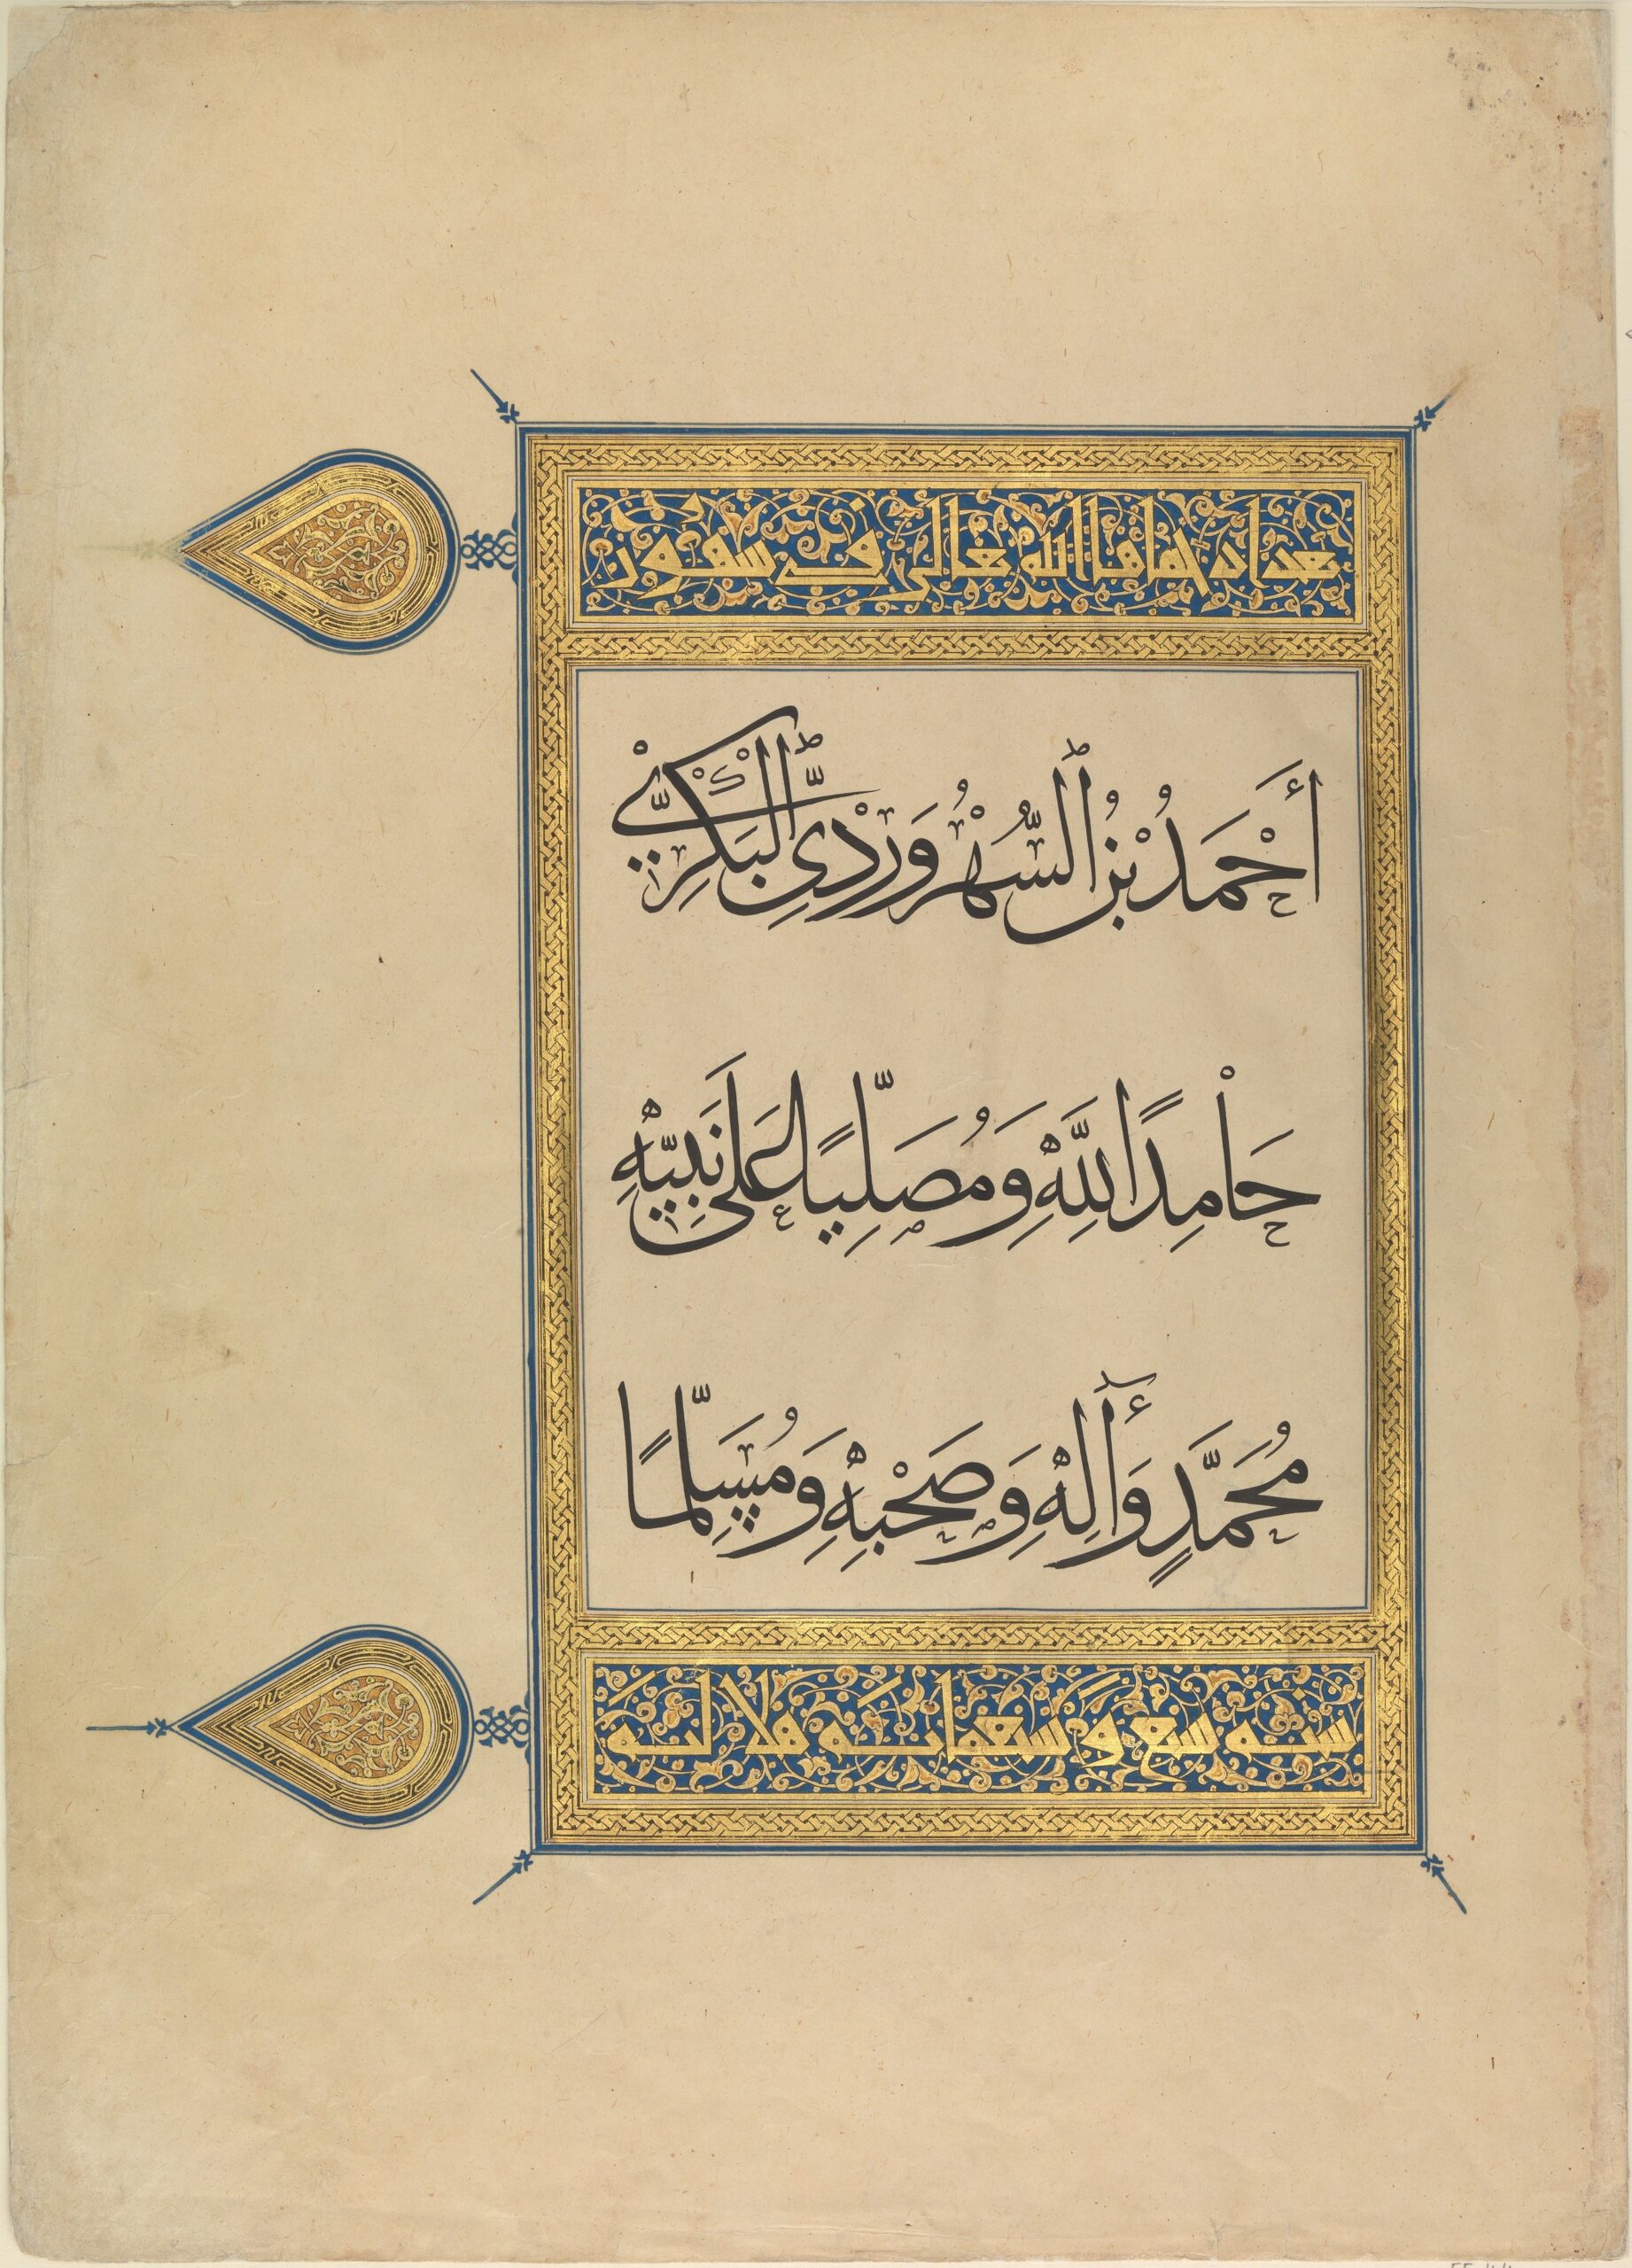 بغداد حماها الله تعالى في شهور
أَحْمَدُ بْنُ ٱلسُّهْرَوَرْدِيِّ ٱلْبَكْرِيِّ
حَامِدًا لِلَّهِ وَمُصَلِّيًا عَلَى نَبِيِّهِ
مُحَمَّدٍ وَأٓلِهِ وَصَحْبِهِ وَمُسَلِّمًا
سنة سبع وسبعمائة هلالية